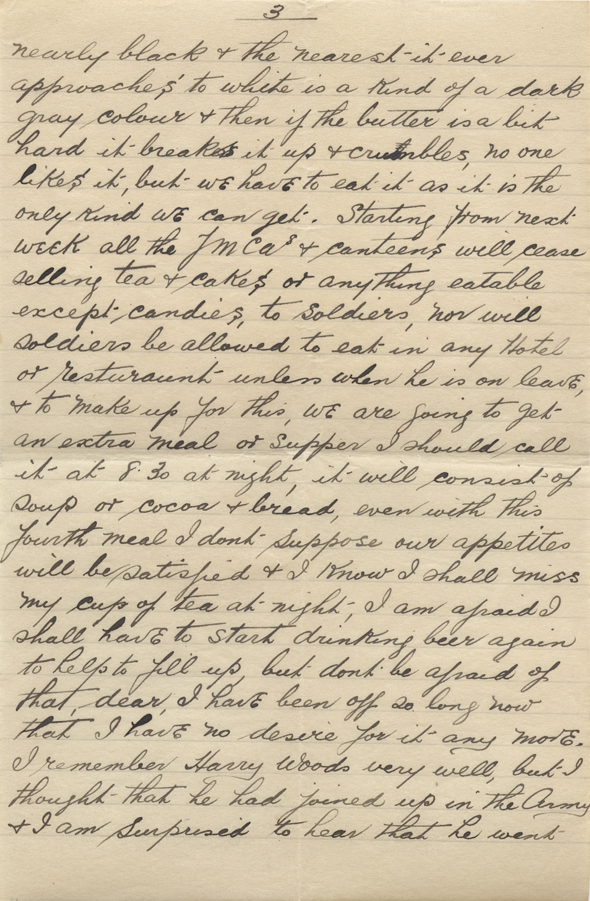 3
nearly black & the nearest it ever
approaches to white is a kind of a dark
gray colour & then if the butter is a bit
hard it breaks it up & crumbles, no one
likes it, but we have to eat it as it is the
only kind we can get. Starting from next
week all the YMCAs & canteens will cease
selling tea & cakes or anything eatable
except candies, to soldiers, nor will
soldiers be allowed to eat in any Hotel
or resturaunt unless when he is on leave,
& to make up for this, we are going to get
an extra meal or supper I should call
it at 8.30 at night, it will consist of
soup or cocoa & bread, even with this
fourth meal I dont suppose our appetites
will be satisfied & I know I shall miss
my cup of tea at night, I am afraid I
shall have to start drinking beer again
to help to fill up, but dont be afraid of
that, dear, I have been off so long now
that I have no desire for it any more.
I remember Harry Woods very well, but I
thought that he had joined up in the Army
& I am surprised to hear that he went